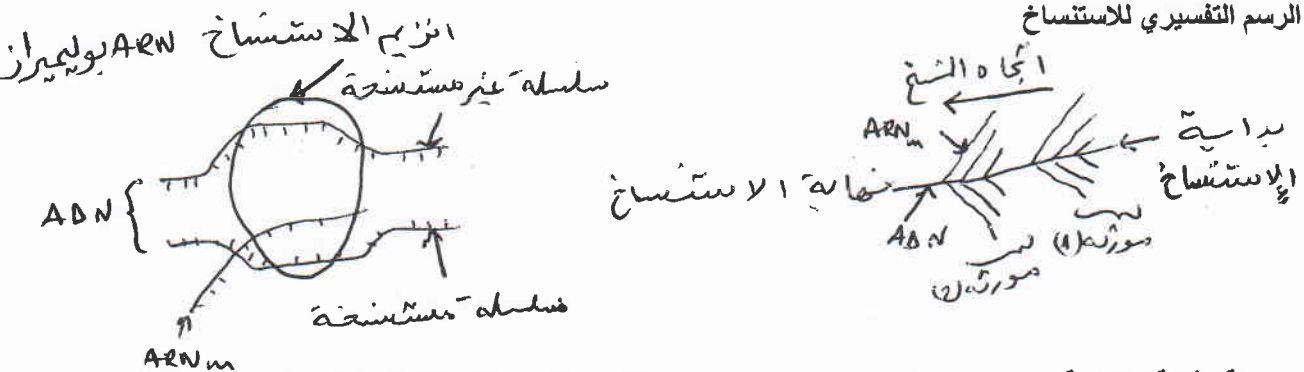 الرسم التفسيري للاستنساخ
اتجاه النسخ
ARNm
بداية
الاستنساخ
نهاية الاستنساخ
ADN
مورثة (1)
مورثة (2)
انزيم الاستنساخ ARN بوليميراز
سلسلة غير مستنسخة
ADN
سلسلة مستنسخة
ARNm